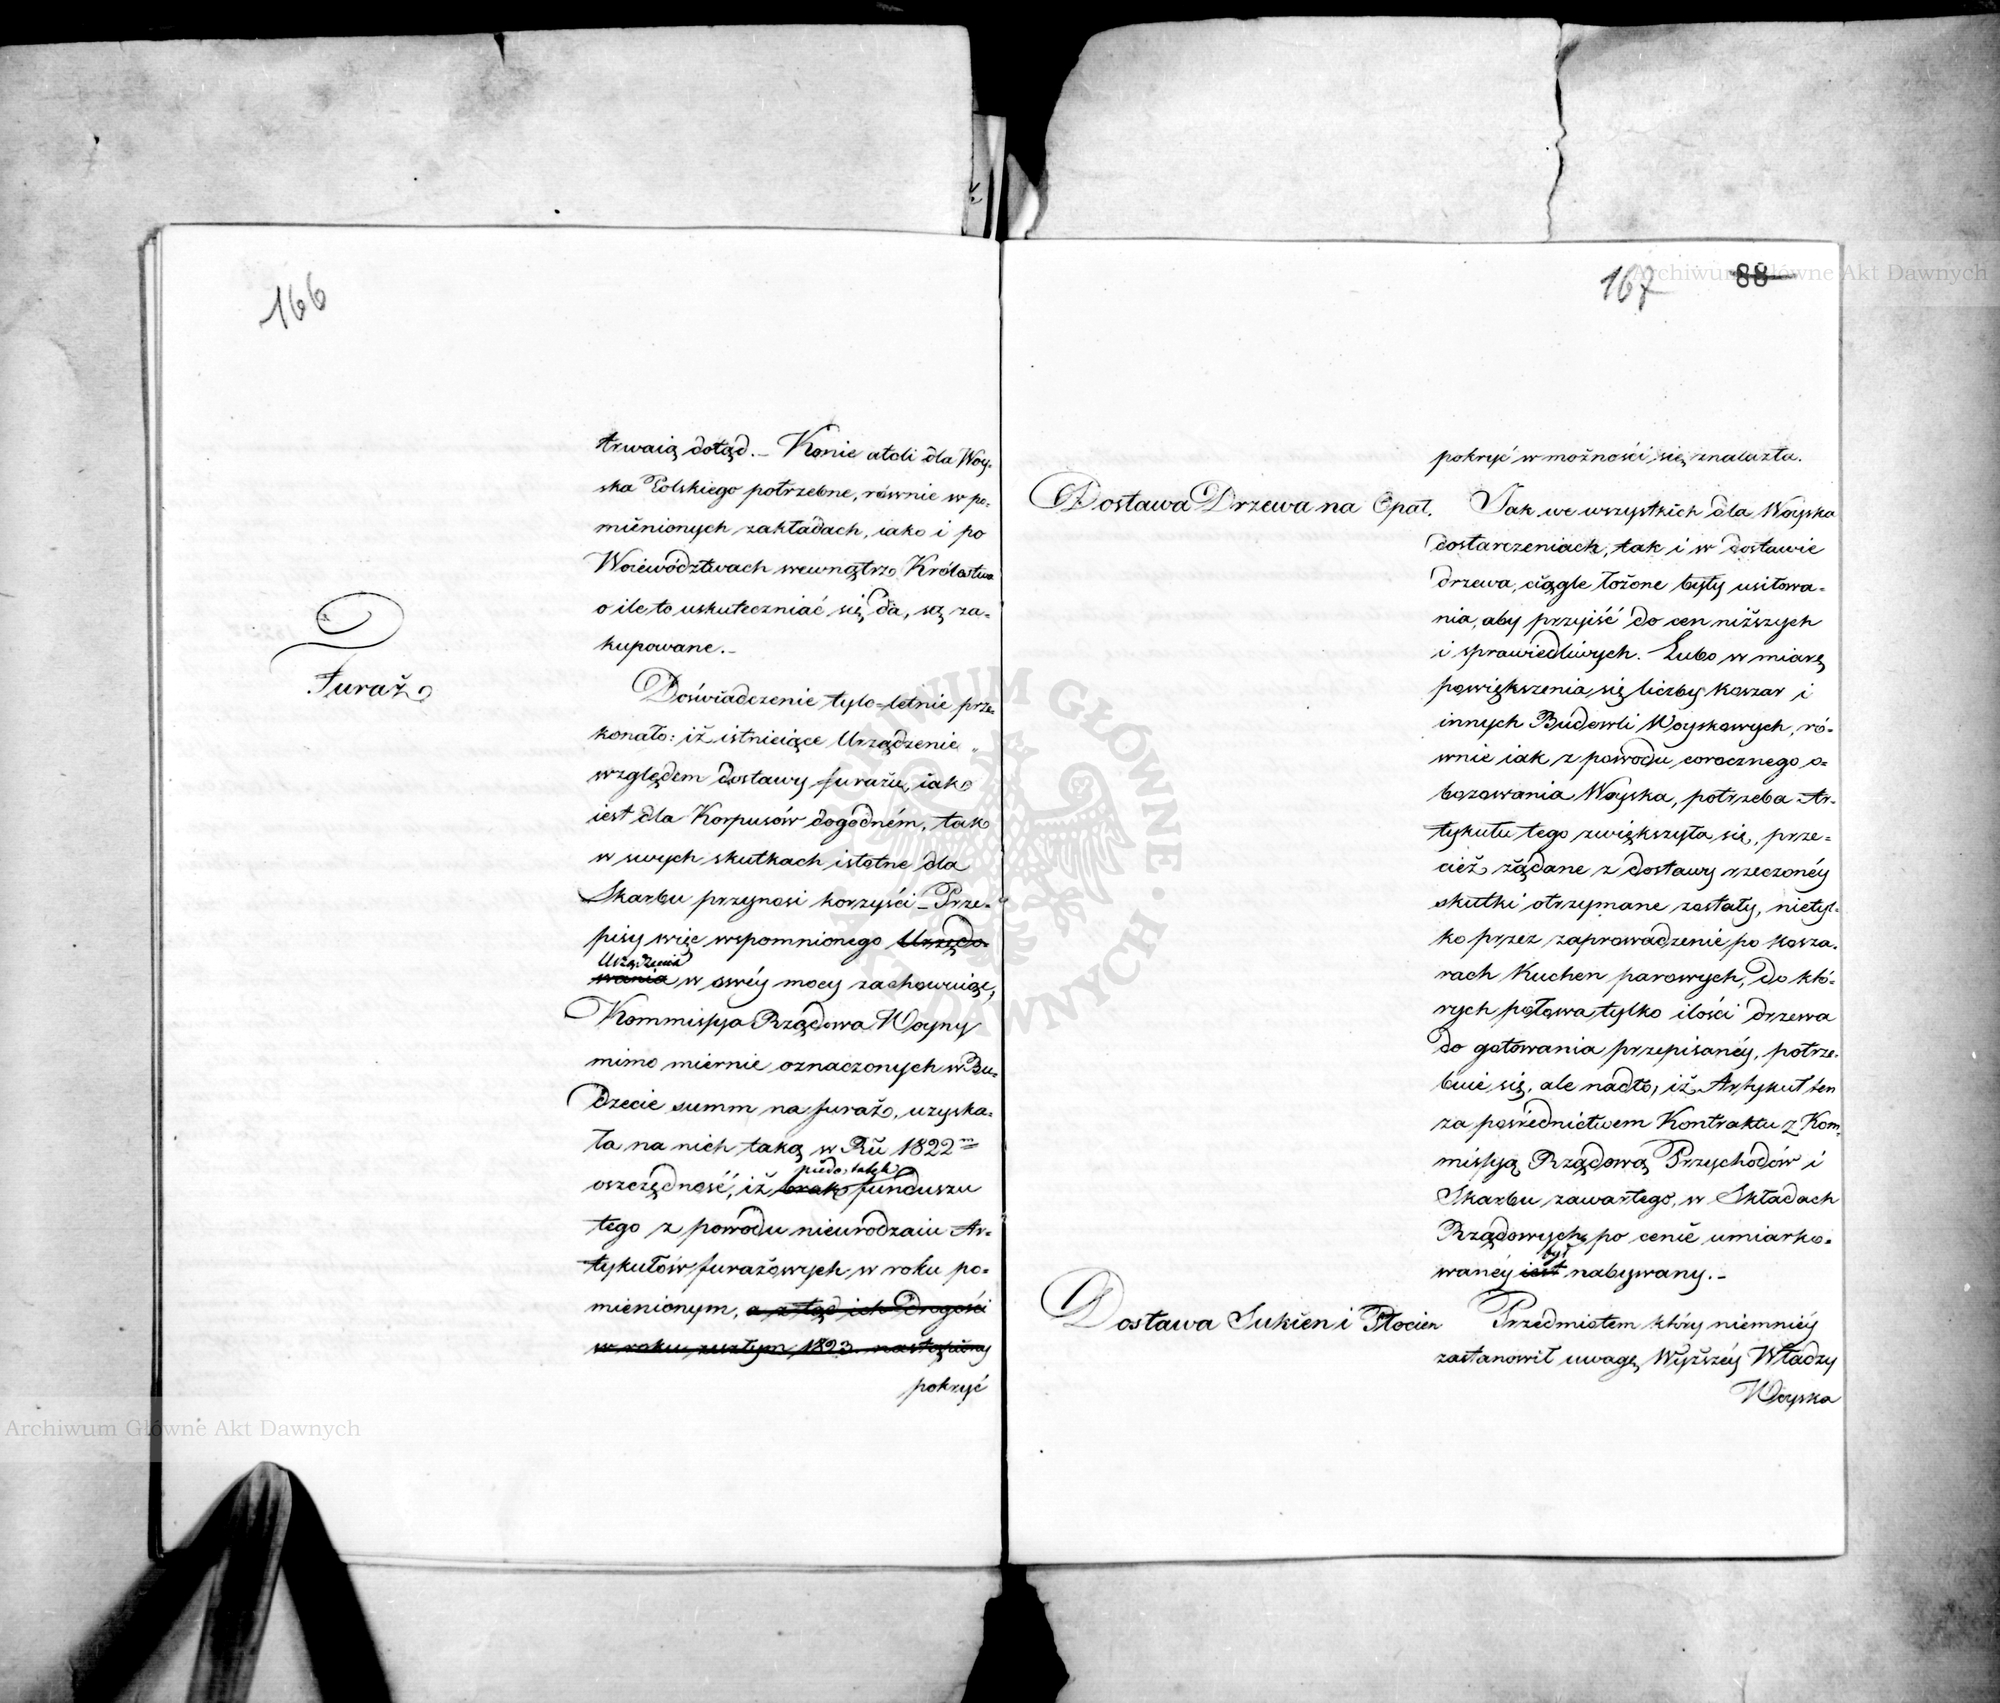 166
trwaią dotąd._ Konie atoli dla Woy-
ska Polskiego potrzebne, równie w po-
mienionych zakładach, iako i po
Woiewództwach wewnątrz Królestwa
o ile to uskuteczniać się da, są za-
kupowane._
Furaż
Doświadczenie tylo-letnie prze-
konało: iż istnieiące Urządzenie
względem dostawy furażu, iak
iest dla Korpusów dogodném, tak
w swych skutkach istotne dla
Skarbu przynosi korzyści _ Prze-
pisy więc wspomnionego Urzędo-
Urządzenia
wania w swéy mocy zachowuiąc,
Kommissya Rządowa Woyny
mimo miernie oznaczonych w Bu-
dżecie summ na furaż, uzyska-
ła na nich taką w Ru 1822m
niedostatek
oszczędność, iż brak funduszu
tego z powodu nieurodzaiu Ar-
tykułów furażowych w roku po-
mienionym, a z tąd ich drogości
w roku zeszłym 1823 nastąpioney
pokryć
167 88
pokryć w możności się znalazła.
Dostawa Drzewa na Opał.
Jak we wszystkich dla Woyska
dostarczeniach, tak i w dostawie
drzewa, ciągle łożone były usiłowa-
nia, aby przyiść do cen niższych
i sprawiedliwych. Lubo w miarę
powiększenia się liczby Koszar i
innych Budowli Woyskowych, ró-
wnie iak z powodu corocznego o-
bozowania Woyska, potrzeba Ar-
tykułu tego zwiększyła się, prze-
cież żądane z dostawy rzeczonéy
skutki otrzymane zostały, nietyl-
ko przez zaprowadzenie po Kosza-
rach Kuchen parowych, do któ-
rych połowa tylko ilości drzewa
do gotowania przepisanéy, potrze-
buie się, ale nadto, iż Artykuł ten
za pośrednictwem Kontraktu z Kom-
missyą Rządową Przychodów i
Skarbu zawartego, w Składach
Rządowych, po cenie umiarko-
był
wanéy iest nabywany._
Dostawa Sukien i Płocien
Przedmiotem który niemniéy
zastanowił uwagę Wyższéy Władzy
Woyska
Archiwum Główne Akt Dawnych
Archiwum Główne Akt Dawnych
ARCHIWUM GŁÓWNE AKT DAWNYCH